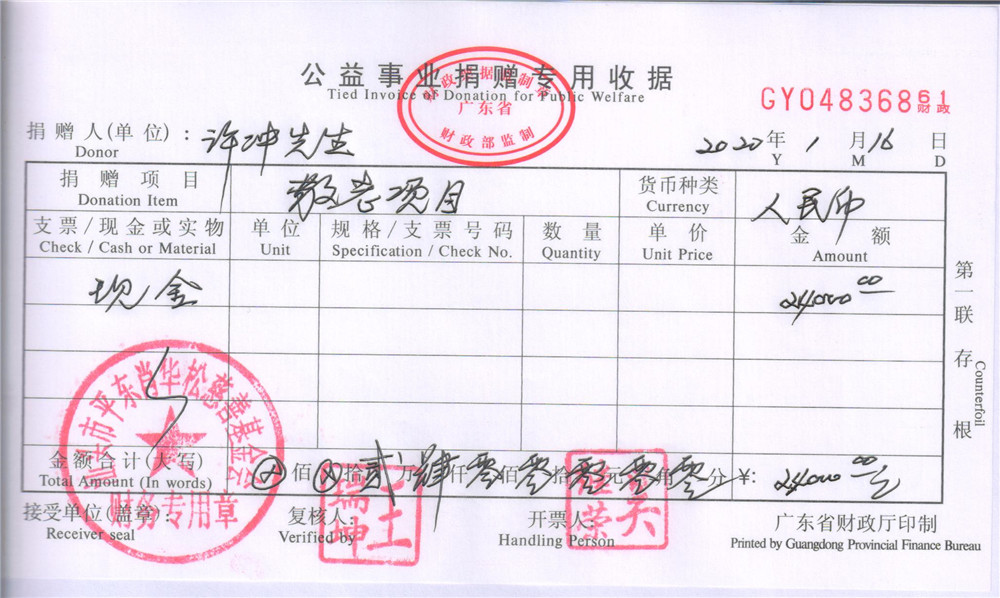 公益事业捐赠专用收据
Tied Invoice of Donation for Public Welfare
财政票据监制章
广东省
财政部监制
GY04836861
财政
捐赠人(单位): 许坤先生
Donor
2020年 1月16日
Y M D
捐赠项目 敬老项目 货币种类 人民币
Donation Item Currency
支票/现金或实物 单位 规格/支票号码 数量 单价 金额
Check / Cash or Material Unit Specification / Check No. Quantity Unit Price Amount
现金 24000.00
第一联 存根
Counterfoil
金额合计(大写) ⊗佰⊗拾贰肆仟零佰零拾零元零角零分 ¥: 24000.00元
Total Amount (In words)
市平东肖华松慈善基金会
财务专用章
接受单位(盖章): 复核人: 开票人: 广东省财政厅印制
Receiver seal Verified by Handling Person Printed by Guangdong Provincial Finance Bureau